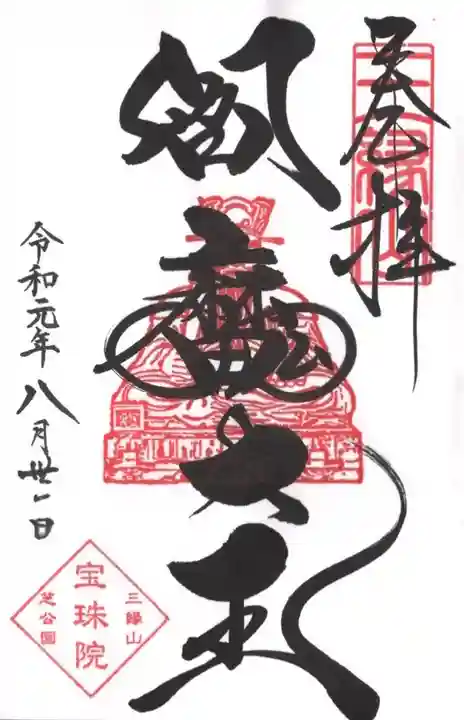 奉拝
三縁山
閻魔大王
令和元年八月卅一日
三縁山
宝珠院
芝公園